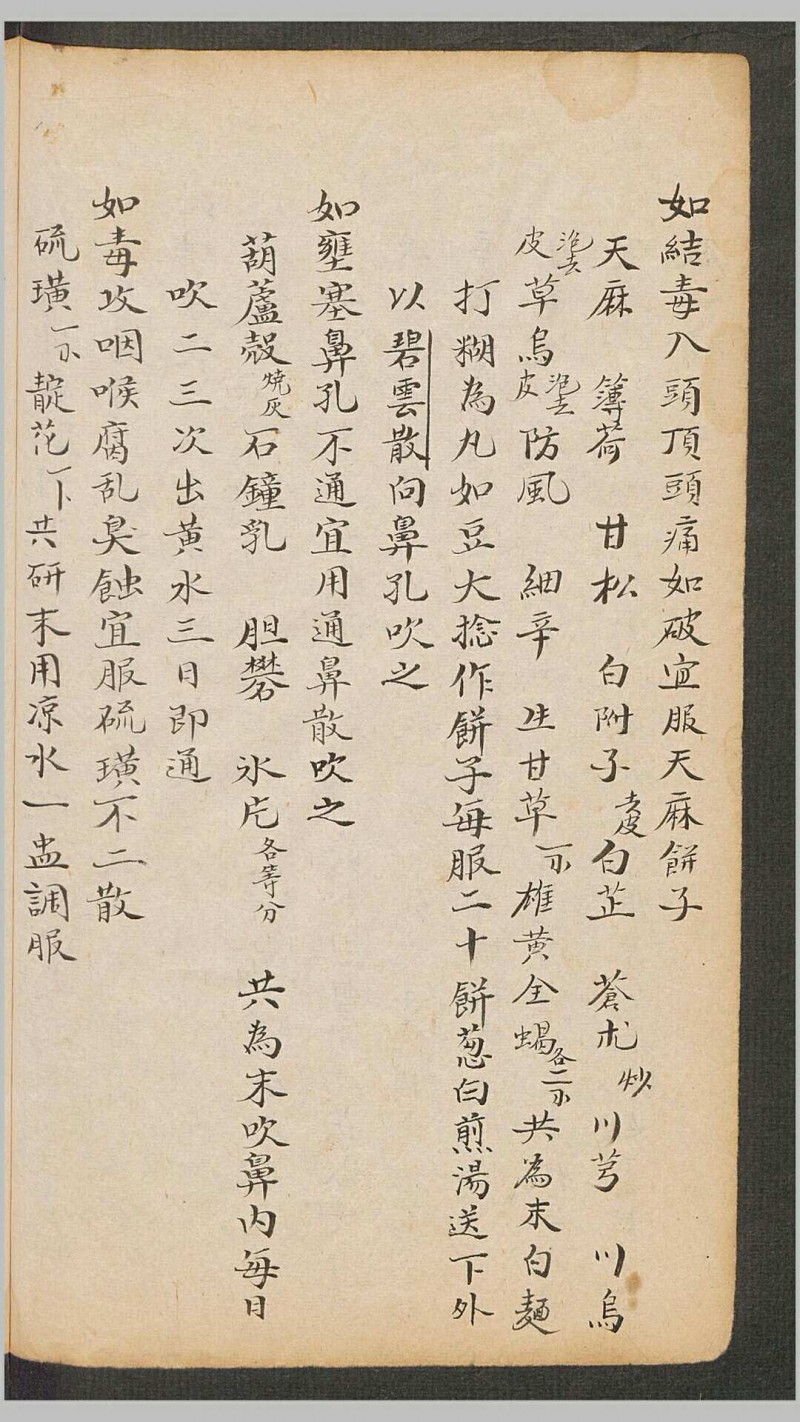 如結毒入頭頂頭痛如破宜服天麻餅子
天麻 簿荷 甘松 白附子去皮 白芷 蒼朮炒 川芎 川烏
泡去皮 草烏泡去皮 防風 細辛 生甘草 雄黃全蝎各二 共為末白麺
打糊為丸如豆大捻作餅子每服二十餅葱白煎湯送下外
以碧雲散向鼻孔吹之
如壅塞鼻孔不通宜用通鼻散吹之
葫蘆殼燒灰 石鐘乳 胆礬 氷片各等分 共為末吹鼻內每日
吹二三次出黃水三日即通
如毒攻咽喉腐乱臭蝕宜服硫璜不二散
硫璜 靛花 共研末用凉水一盅調服